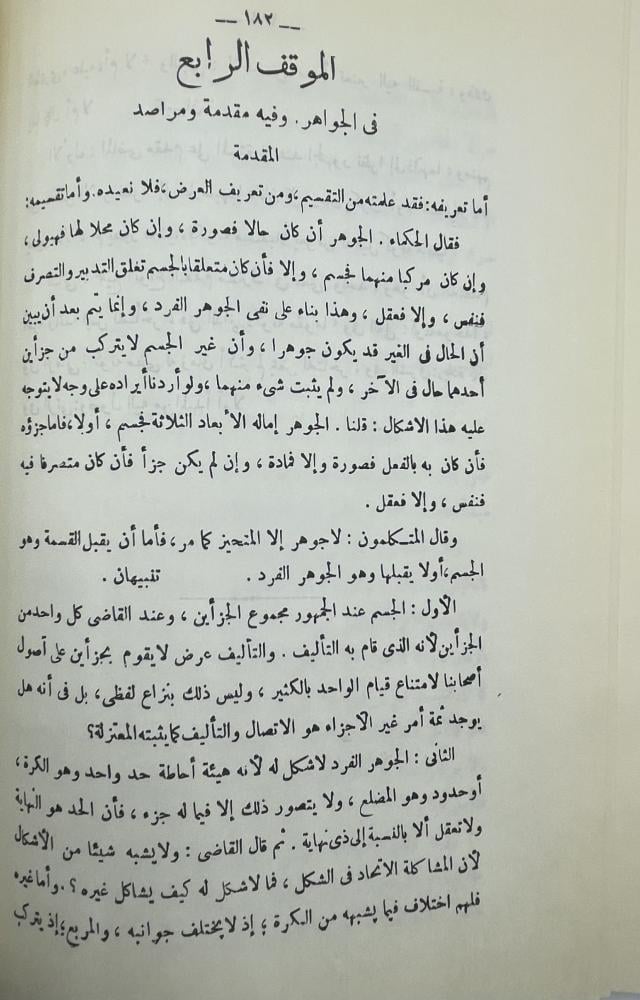 — ١٨٢ —
الموقف الرابع
فى الجواهر. وفيه مقدمة ومراصد
المقدمة
أما تعريفه: فقد علمته من التقسيم، ومن تعريف العرض، فلا نعيده. وأما تقسيمه:
فقال الحكماء. الجوهر أن كان حالا فصورة، وإن كان محلا لها فهيولى،
وإن كان مركبا منهما فجسم، وإلا فأن كان متعلقا بالجسم تعلق التدبير والتصرف
فنفس، وإلا فعقل، وهذا بناء على نفى الجوهر الفرد، وإنما يتم بعد أن يبين
أن الحال فى الغير قد يكون جوهرا، وأن غير الجسم لا يتركب من جزأين
أحدهما حال فى الآخر، ولم يثبت شىء منهما، ولو أردنا أيراده على وجه لا يتوجه
عليه هذا الاشكال: قلنا. الجوهر إما له الأبعاد الثلاثة فجسم، أولا، فاما جزؤه
فأن كان به بالفعل فصورة وإلا فمادة، وإن لم يكن جزأ فأن كان متصرفا فيه
فنفس، وإلا فعقل.
وقال المتكلمون: لا جوهر إلا المتحيز كما مر، فأما أن يقبل القسمة وهو
الجسم، أولا يقبلها وهو الجوهر الفرد. تنبيهان.
الأول: الجسم عند الجمهور مجموع الجزأين، وعند القاضى كل واحد من
الجزأين لأنه الذى قام به التأليف. والتأليف عرض لا يقوم بجزأين على أصول
أصحابنا لامتناع قيام الواحد بالكثير، وليس ذلك بنزاع لفظى، بل فى أنه هل
يوجد ثمة أمر غير الأجزاء هو الاتصال والتأليف كما يثبته المعتزلة؟
الثانى: الجوهر الفرد لاشكل له لأنه هيئة أحاطة حد واحد وهو الكرة،
أو حدود وهو المضلع، ولا يتصور ذلك إلا فيما له جزء، فأن الحد هو النهاية
ولا تعقل ألا بالنسبة إلى ذى نهاية. ثم قال القاضى: ولا يشبه شيئا من الأشكال
لأن المشاكلة الاتحاد فى الشكل، فما لاشكل له كيف يشاكل غيره؟. وأما غيره
فلهم اختلاف فيما يشبهه من الكرة؛ إذ لا يختلف جوانبه، والمربع؛ إذ يتركب